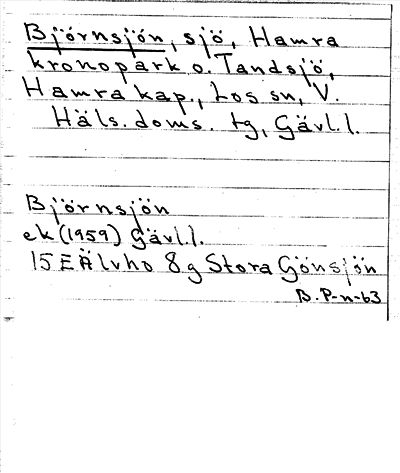 Björnsjön, sjö, Hamra
kronopark o. Tandsjö,
Hamra kap., Los sn, V.
Häls. doms. tg, Gävl. l.
Björnsjön
ek (1959) Gävl. l.
15 E Älvho 8 g Stora Gönsjön
B. P-n-63